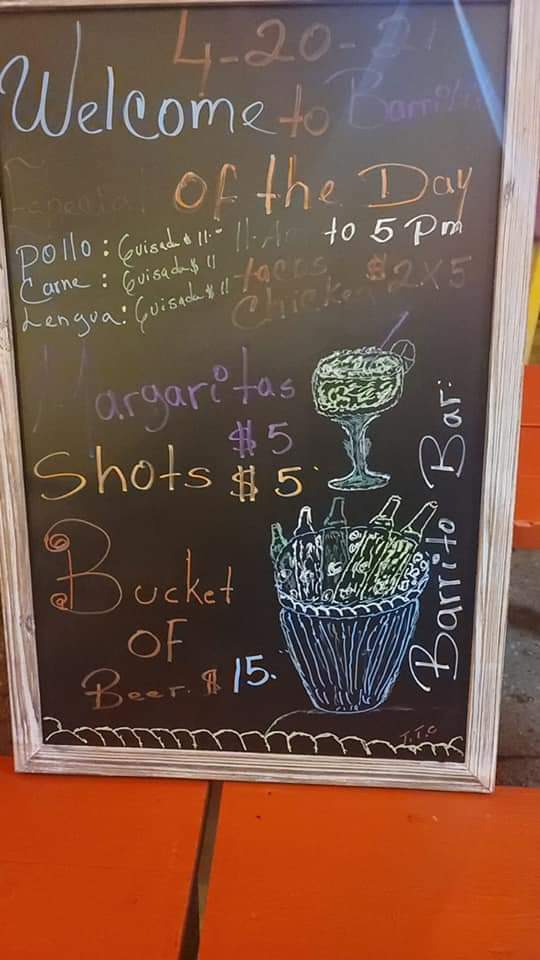 4-20-21
Welcome to Barrito
Especial of the Day
Pollo: Guisada $ 11.- 11 to 5 Pm
Carne: Guisada $ 11 tacos $2x5
Lengua: Guisada $ 11 Chicken
Margaritas
$5
Shots $5.
Bucket
OF
Beer. $15.
Barrito Bar:
T.T.C